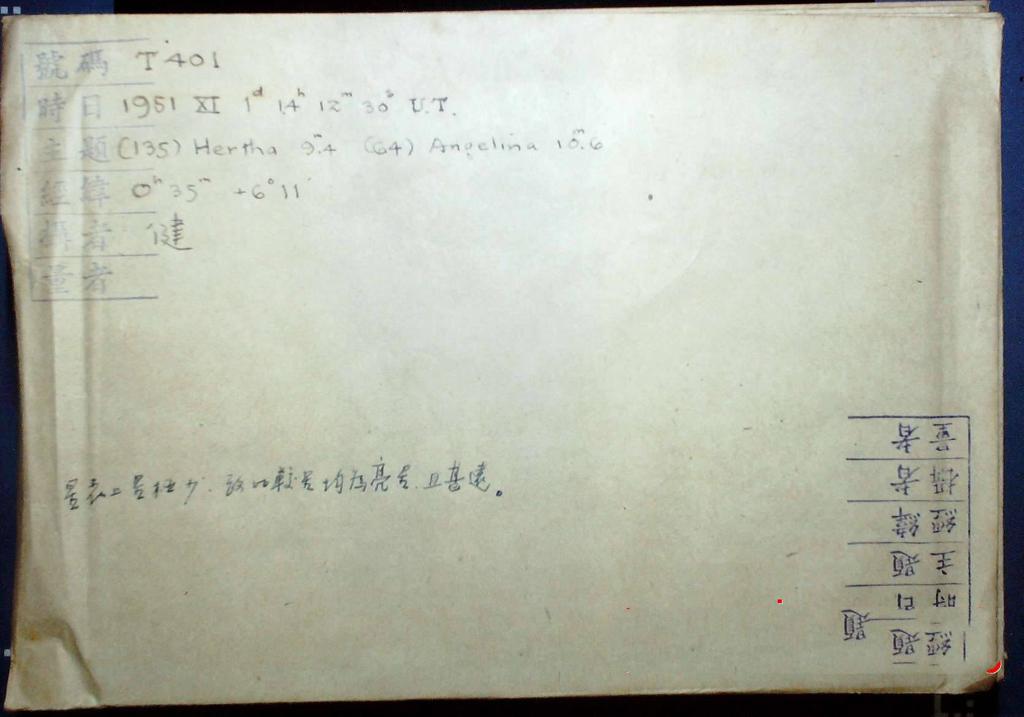 號碼 T 401
時日 1951 XI 1ᵈ 14ʰ 12ᵐ 30ˢ U.T.
主題 (135) Hertha 9ᵐ.4 (64) Angelina 10ᵐ.6
經緯 0ʰ 35ᵐ +6° 11′
攝者 健
量者
星表上星極少, 故比較星均為亮星, 且甚遠。
量者
攝者
經緯
主題
時
題
經題